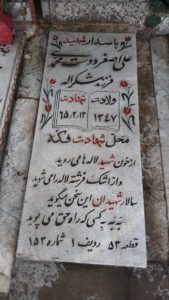 پاسدار شهید
علی اصغر دوست محمد
فرزند شکراله
ولادت شهادت
۱۳۴۷ ۶۵/۲/۱۳
محل شهادت فکه
از خون شهید لاله ها می روید
وز اشک فرشته لاله را می شوید
سالار شهیدان این سخن میگوید
به به کسی که راه حق می پوید
قطعه ۵۳ ردیف ۱ شماره ۱۵۲